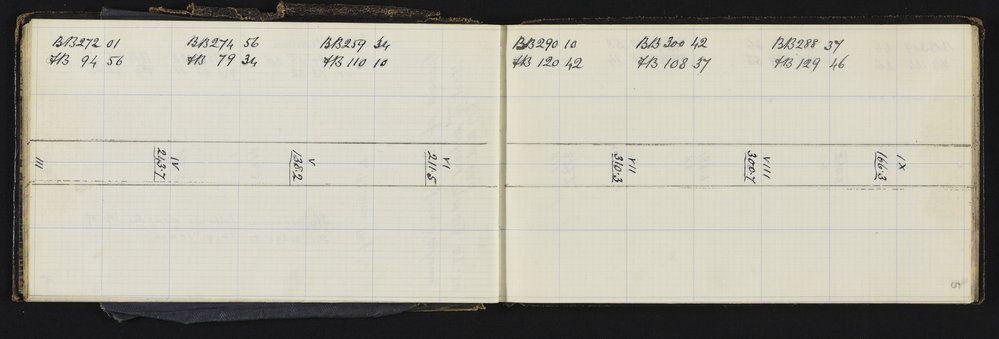 BB272 01 BB274 56 BB259 34
FB 94 56 FB 79 34 FB 110 10
III
IV
243.7
V
138.2
VI
211.5
BB290 10 BB300 42 BB288 37
FB 120 42 FB 108 37 FB 129 46
VII
310.3
VIII
300.7
IX
166.3
5